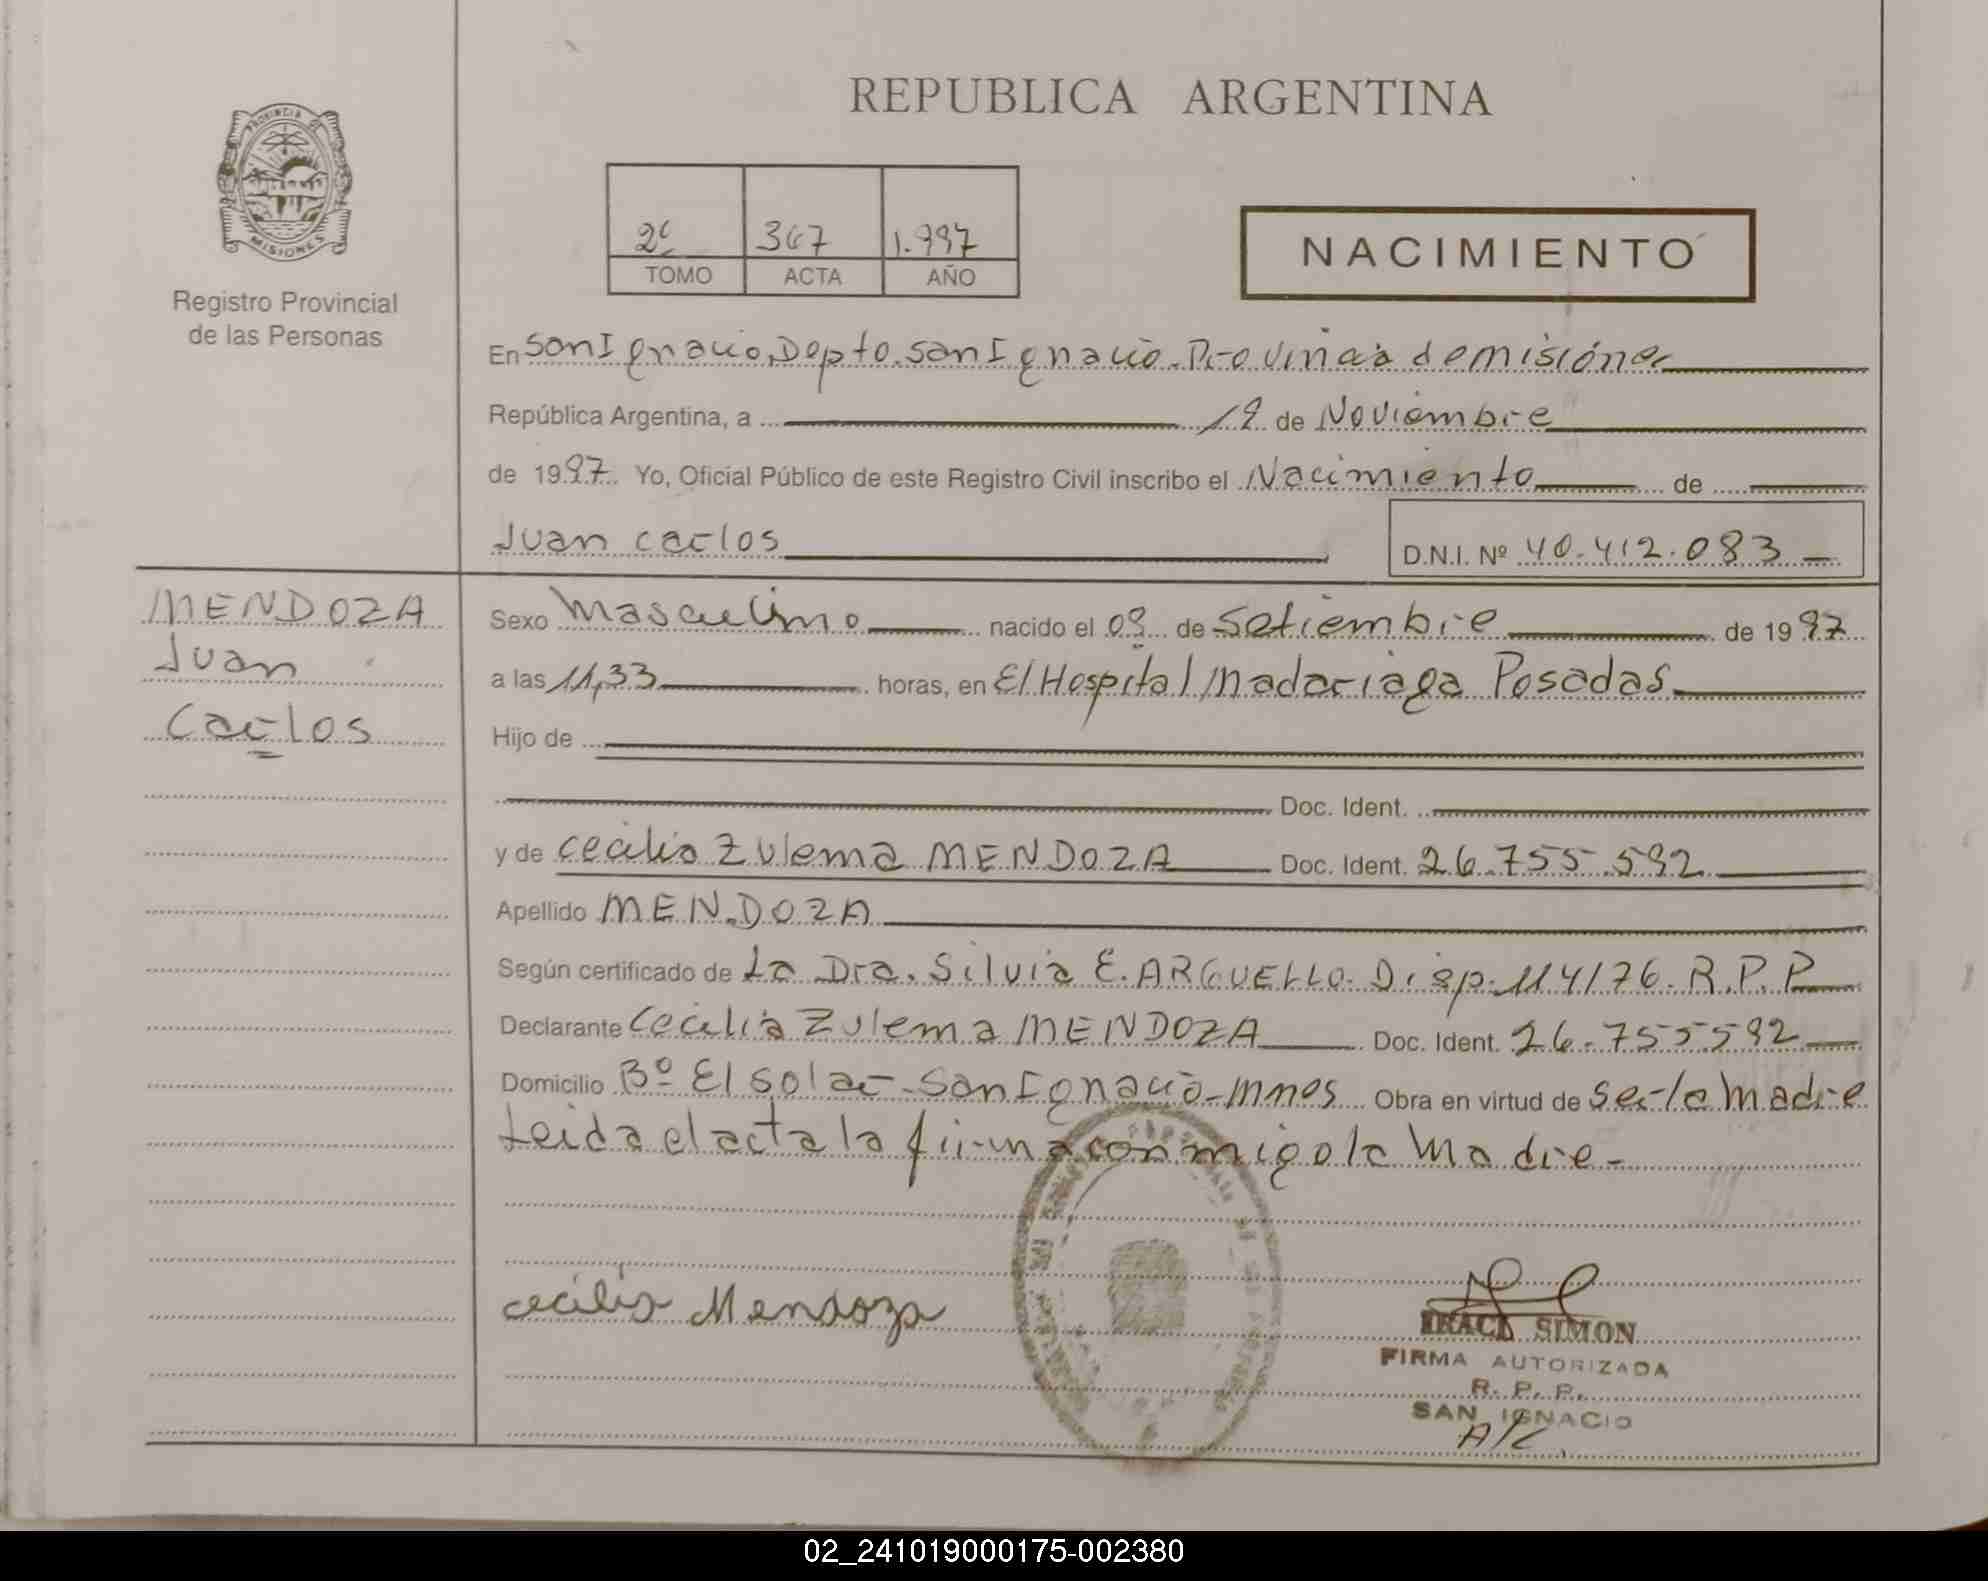 REPUBLICA ARGENTINA
PROVINCIA DE
MISIONES
Registro Provincial
de las Personas
2º 367 1.997
TOMO ACTA AÑO
NACIMIENTO
En San Ignacio, Depto. San Ignacio. Provincia de misiones
República Argentina, a 19 de Noviembre
de 1997 Yo, Oficial Público de este Registro Civil inscribo el Nacimiento de
Juan Carlos D.N.I. Nº 40.412.083
MENDOZA
Juan
Carlos
Sexo Masculino nacido el 09 de Setiembre de 1997
a las 11,33 horas, en El Hospital Madariaga Posadas
Hijo de
Doc. Ident.
y de Cecilia Zulema MENDOZA Doc. Ident. 26.755.592
Apellido MENDOZA
Según certificado de La Dra. Silvia E. ARGUELLO. Disp. 114/76. R.P.P
Declarante Cecilia Zulema MENDOZA Doc. Ident. 26.755592
Domicilio Bº El Solar - San Ignacio - Mnes Obra en virtud de ser la Madre
Leida el acta la firma conmigo la Madre -
Cecilia Mendoza
IRACI SIMON
FIRMA AUTORIZADA
R. P. P.
SAN IGNACIO
A/C
02_241019000175-002380